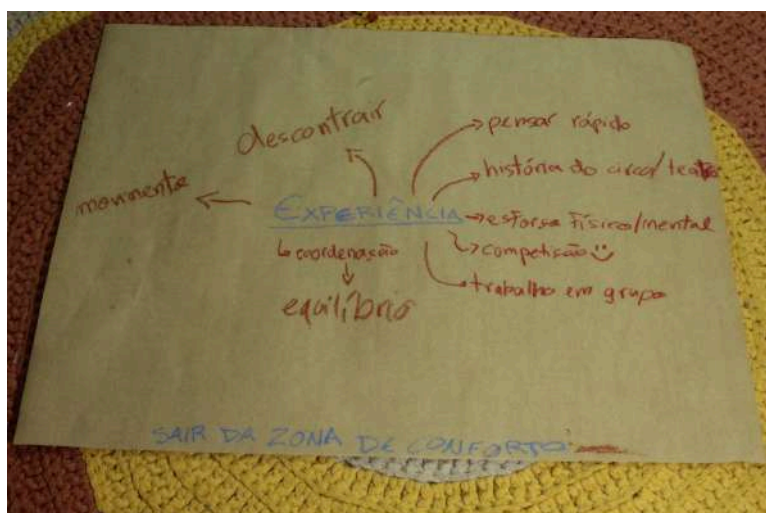 descontrair
movimento
EXPERIÊNCIA
pensar rápido
história do circo/teatro
esforso físico/mental
competisão
trabalho em grupo
coordenação
equilíbrio
SAIR DA ZONA DE CONFORTO